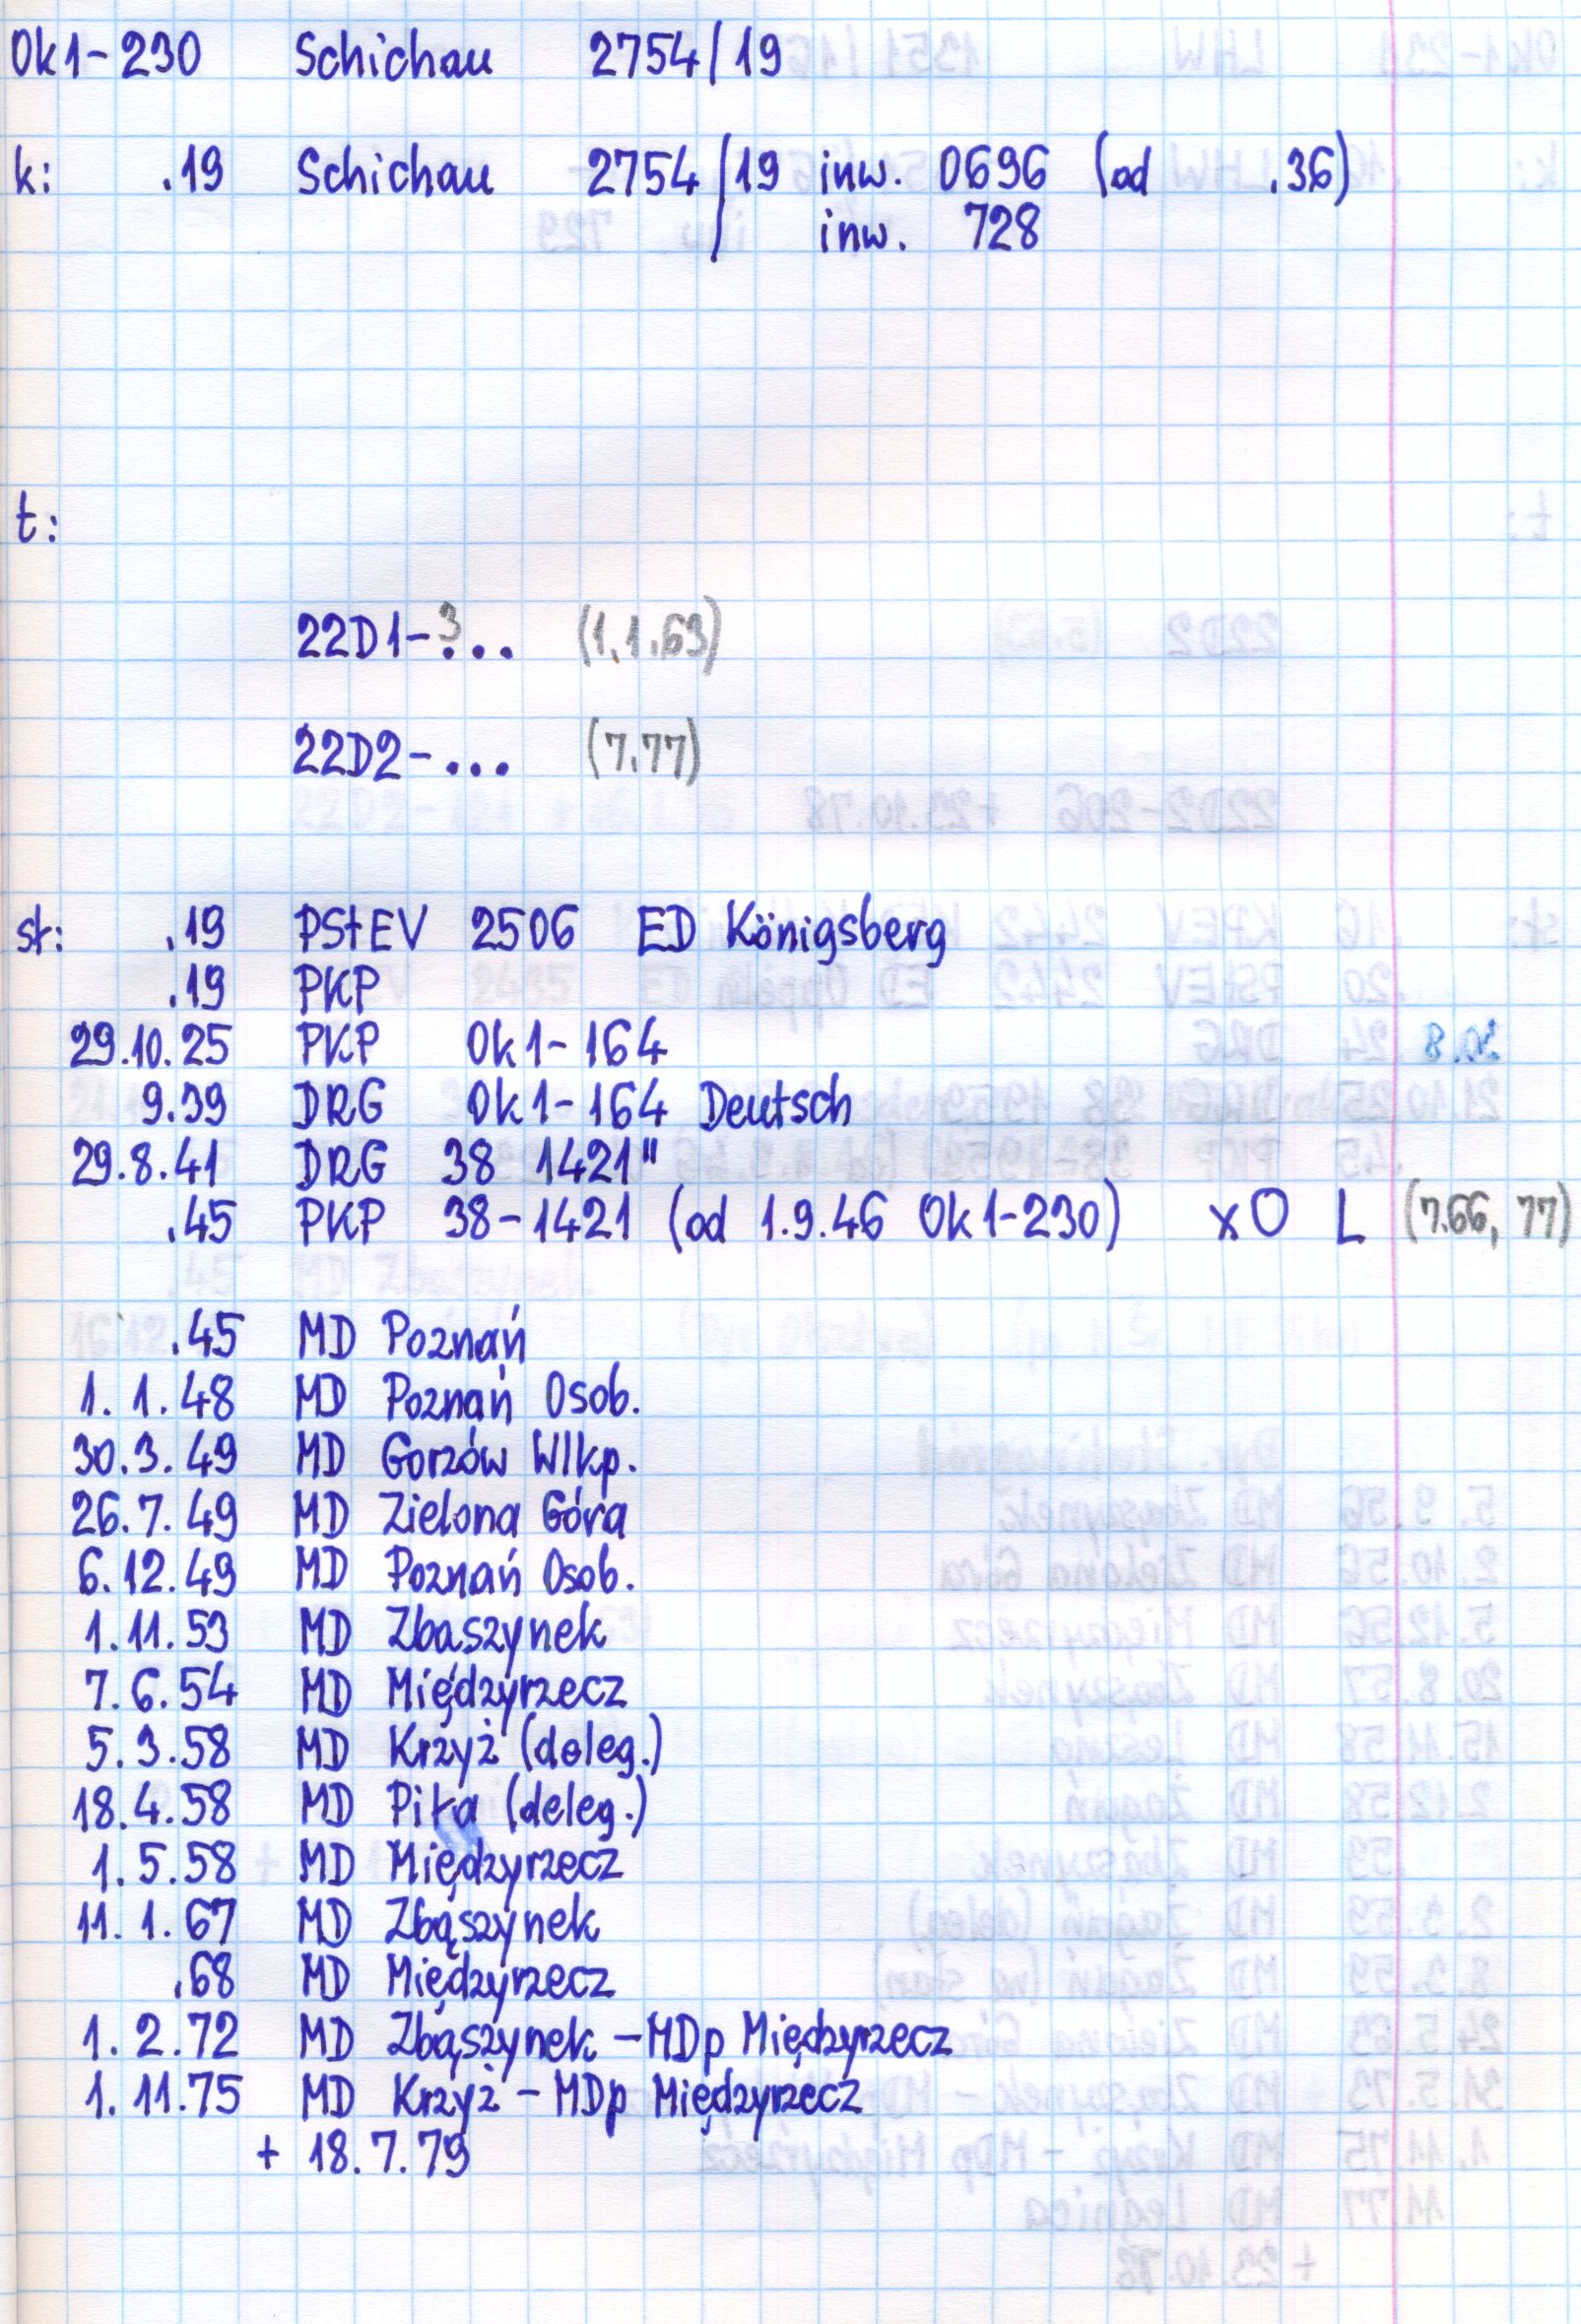 Ok1-230 Schichau 2754/19
k: .19 Schichau 2754/19 inw. 0696 (od .36)
inw. 728
t:
22D1-3... (1.1.63)
22D2-... (7.77)
st: .19 PStEV 2506 ED Königsberg
.19 PKP
29.10.25 PKP Ok1-164
9.39 DRG Ok1-164 Deutsch
29.8.41 DRG 38 1421"
.45 PKP 38-1421 (od 1.9.46 Ok1-230) xO L (7.66, 77)
.45 MD Poznań
1.1.48 MD Poznań Osob.
30.3.49 MD Gorzów Wlkp.
26.7.49 MD Zielona Góra
6.12.49 MD Poznań Osob.
1.11.53 MD Zbąszynek
7.6.54 MD Międzyrzecz
5.3.58 MD Krzyż (deleg.)
18.4.58 MD Piła (deleg.)
1.5.58 MD Międzyrzecz
11.1.67 MD Zbąszynek
.68 MD Międzyrzecz
1.2.72 MD Zbąszynek - MDp Międzyrzecz
1.11.75 MD Krzyż - MDp Międzyrzecz
+ 18.7.79